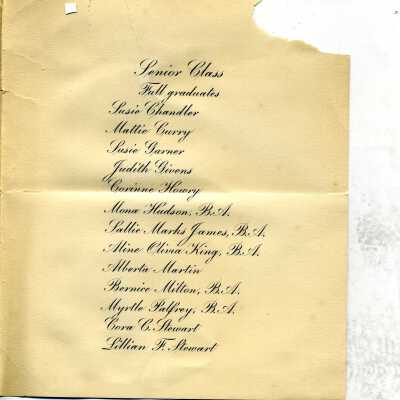 Senior Class
Full graduates
Susie Chandler
Mattie Curry
Susie Garner
Judith Givens
Corinne Howry
Mona Hudson, B.A.
Sallie Marks James, B.A.
Aline Olivia King, B.A.
Alberta Martin
Bernice Milton, B.A.
Myrtle Palfrey, B.A.
Cora C. Stewart
Lillian F. Stewart